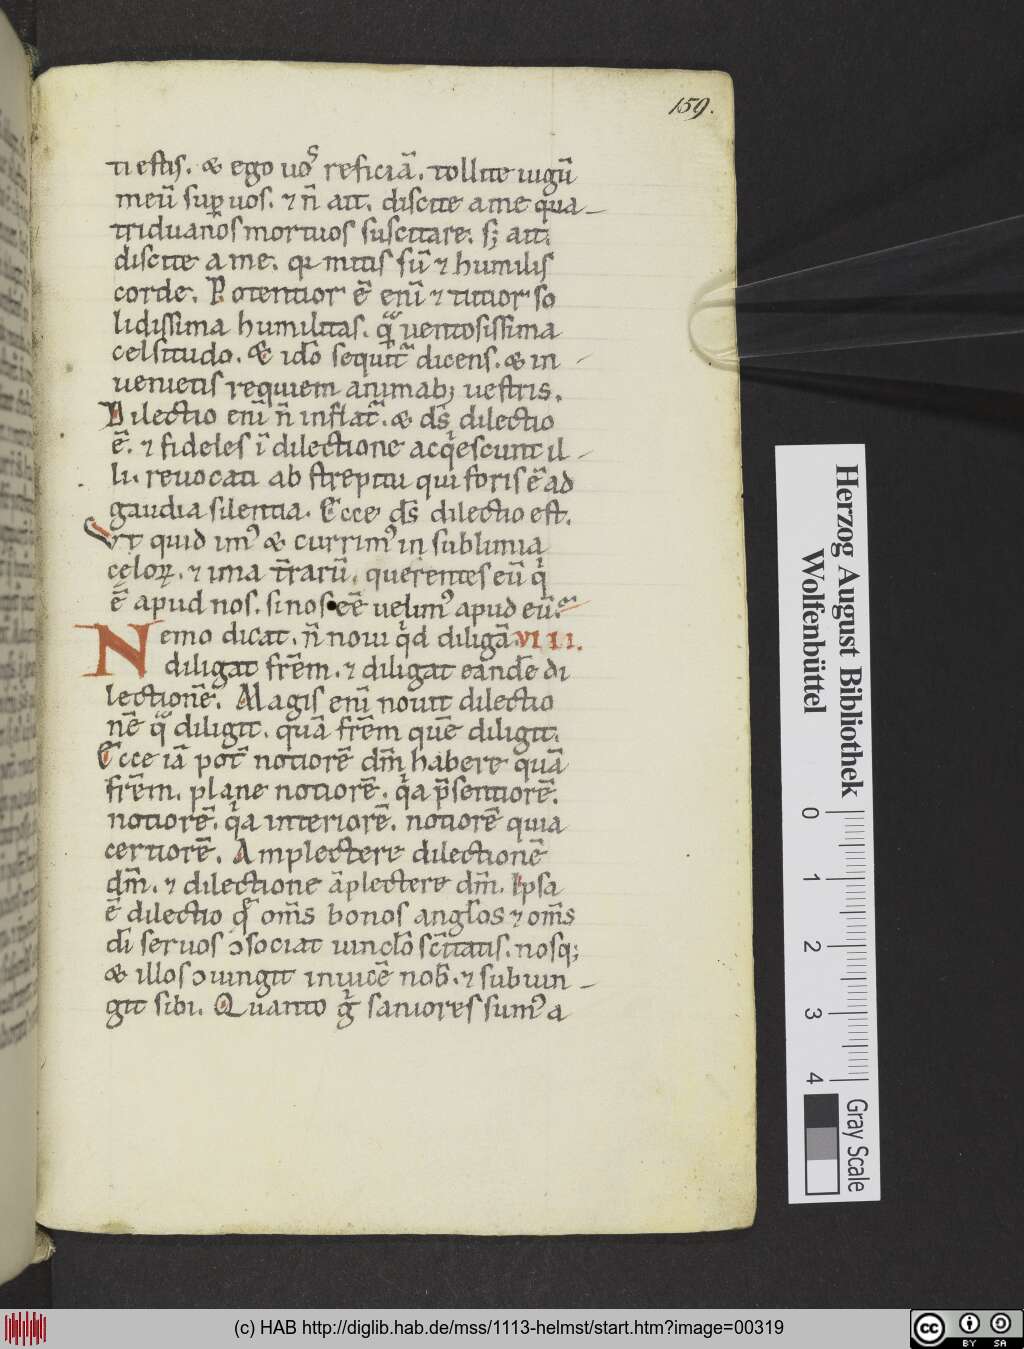 159.
ti estis. & ego uos reficiā. tollite iugū
meū sup uos. ⁊ n̄ ait. discite a me qua-
triduanos mortuos suscitare. s; ait.
discite a me. qi mitis sū ⁊ humilis
corde. Potentior ē enī ⁊ tutior so
lidissima humilitas. qͣ̄ uentosissima
celsitudo. & ido̅ sequit̄ dicens. & in-
uenietis requiem animab; uestris.
Dilectio enī n̄ inflat̄. & ds̄ dilectio
ē. ⁊ fideles ī dilectione acqͥescunt il-
li. reuocati ab strepitu qui foris ē ad
gaudia silentia. Ecce ds̄ dilectio est.
Vt quid imꝰ & currimꝰ in sublimia
cęloꝝ. ⁊ ima t̄rarū. querentes eū qͥ
ē apud nos. si nos eē uelimꝰ apud eū.
Nemo dicat. n̄ noui qͥd diligā. VIII.
diligat fr̄em. ⁊ diligat eandē di
lectionē. Magis enī nouit dilectio
nē qͣ̄ diligit. quā fr̄em quē diligit.
Ecce iā pot̄ notiorē dm̄ habere quā
fr̄em. plane notiorē. qͥa p̄sentiorē.
notiorē. qͥa interiorē. notiorē quia
certiorē. Amplectere dilectionē
dm̄. ⁊ dilectione āplectere dm̄. Ipsa
ē dilectio qͣ̄ om̄s bonos anglo̅s ⁊ om̄s
di̅ seruos ꝯsociat uinclo̅ sc̄itatis. nosq;
& illos ꝯiungit inuicē nob̄. ⁊ subiun-
git sibi. Quanto gͥ saniores sumꝰ a
Herzog August Bibliothek
Wolfenbüttel
0 1 2 3 4
Gray Scale
(c) HAB http://diglib.hab.de/mss/1113-helmst/start.htm?image=00319
cc BY SA